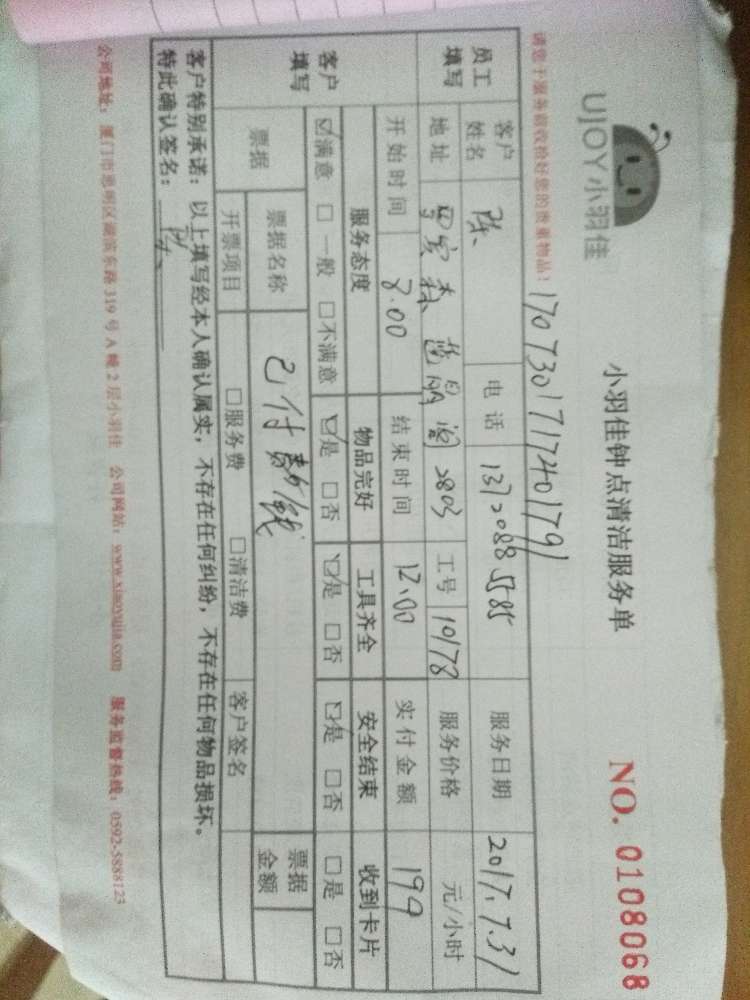 UJOY小羽佳
小羽佳钟点清洁服务单
NO. 0108068
请您于服务前收拾好您的贵重物品！
1707301717401791
员工填写
客户姓名 陈 电话 13720885585 服务日期 2017.7.31
地址 蓝 阁 2803 工号 10178 服务价格 元/小时
开始时间 8.00 结束时间 12.00 实付金额 199
客户填写
服务态度 物品完好 工具齐全 安全结束 收到卡片
☑满意 □一般 □不满意 ☑是 □否 ☑是 □否 ☑是 □否 □是 □否
票据 票据名称 已付 钱 票据金额
开票项目 □服务费 □清洁费 客户签名
客户特别承诺：以上填写经本人确认属实，不存在任何纠纷，不存在任何物品损坏。
特此确认签名： 陈
公司地址：厦门市思明区湖滨东路319号A幢2层小羽佳 公司网站：www.xiaoyujia.com 服务监督热线：0592-5888123